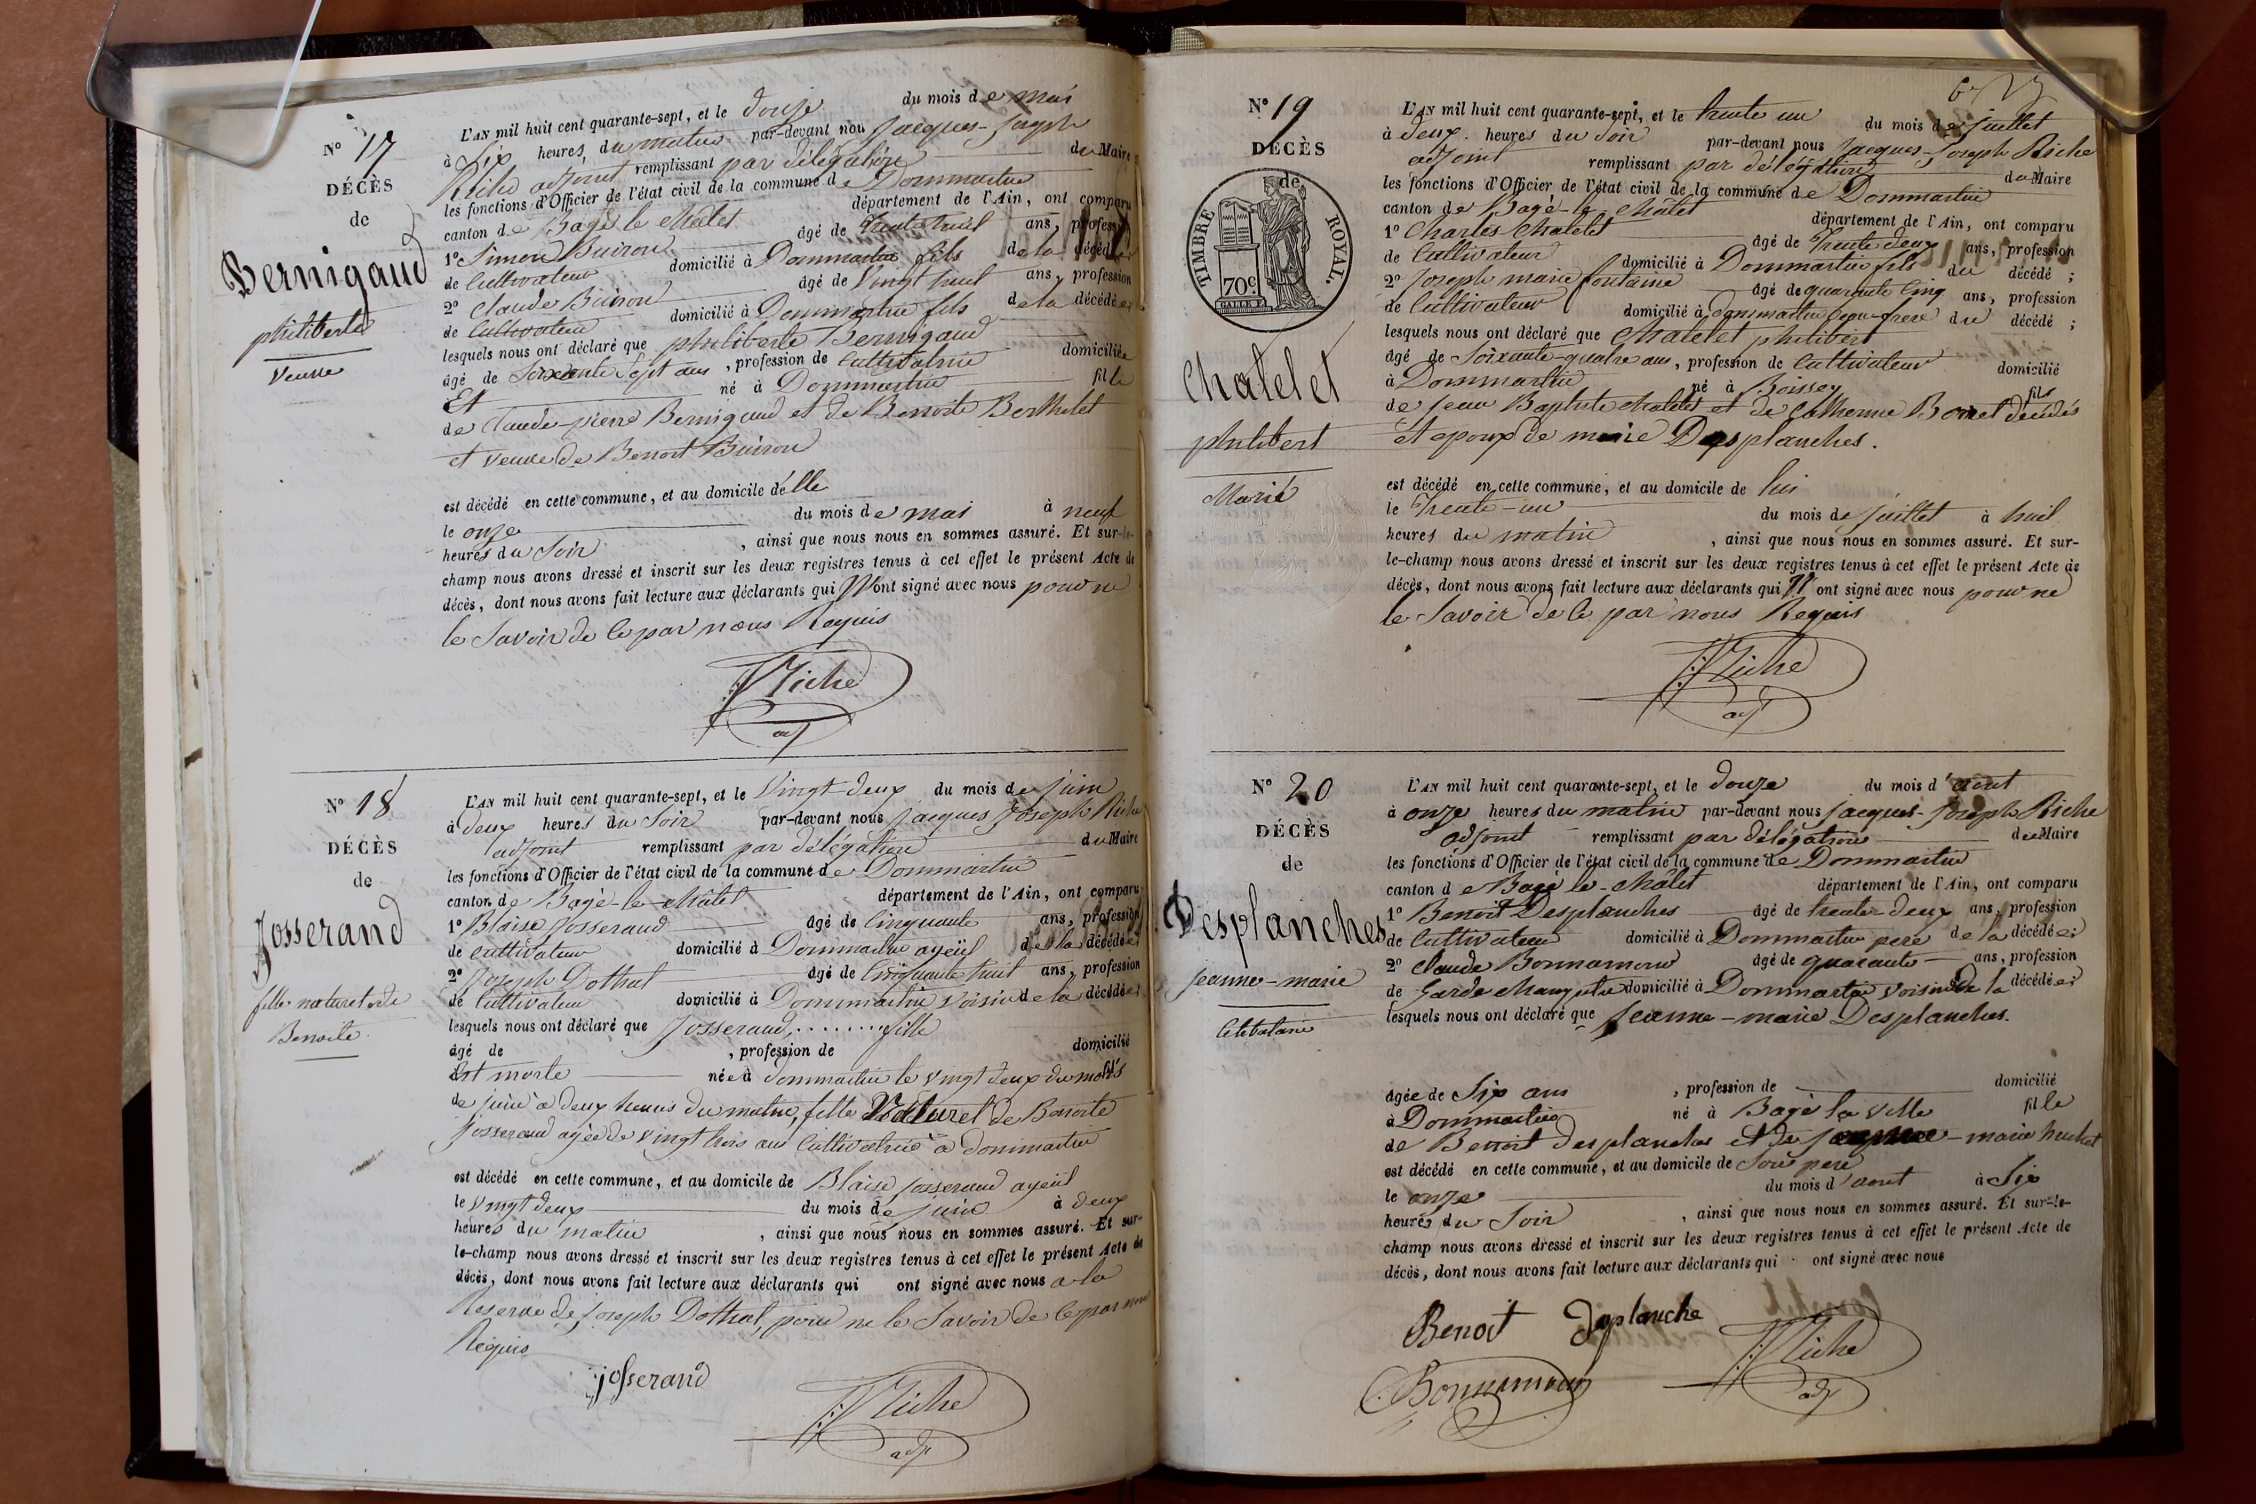 N° 17
DÉCÈS
de
Bernigaud
philiberte
Veuve
L'AN mil huit cent quarante-sept, et le douze du mois de mai
à Six heures du matin par-devant nous Jacques-Joseph
Riche adjoint remplissant par délégation du Maire
les fonctions d'Officier de l'état civil de la commune de Dommartin
canton de Bagé le Châtel département de l'Ain, ont comparu
1° Simon Buiron âgé de trente huit ans, profession
de Cultivateur domicilié à Dommartin fils de la décédée
2° Claude Buiron âgé de Vingt huit ans, profession
de Cultivateur domicilié à Dommartin fils de la décédée
lesquels nous ont déclaré que philiberte Bernigaud
âgé de Soixante Sept ans, profession de Cultivatrice domiciliée
Et né à Dommartin fille
de Claude-pierre Bernigaud et de Benoite Berthelet
et veuve de Benoit Buiron
est décédé en cette commune, et au domicile d'elle
le onze du mois de mai à neuf
heures du Soir, ainsi que nous nous en sommes assuré. Et sur-le-
champ nous avons dressé et inscrit sur les deux registres tenus à cet effet le présent Acte de
décès, dont nous avons fait lecture aux déclarants qui N'ont signé avec nous pour ne
le Savoir de ce par nous Requis
Riche
adj
N° 18
DÉCÈS
de
Josserand
fille naturel de
Benoite
L'AN mil huit cent quarante-sept, et le Vingt-deux du mois de juin
à deux heures du Soir par-devant nous Jacques Joseph Riche
adjoint remplissant par délégation du Maire
les fonctions d'Officier de l'état civil de la commune de Dommartin
canton de Bagé-le-Châtel département de l'Ain, ont comparu
1° Blaise Josserand âgé de Cinquante ans, profession
de cultivateur domicilié à Dommartin ayeül de la décédée
2° Joseph Dothal âgé de Cinquante huit ans, profession
de Cultivateur domicilié à Dommartin voisin de la décédée
lesquels nous ont déclaré que Josserand ......... fille
âgé de , profession de domicilié
Est morte née à Dommartin le vingt deux du mois
de juin à deux heures du matin, fille Naturel de Benoite
Josserand agée de vingt trois ans Cultivatrice à Dommartin
est décédé en cette commune, et au domicile de Blaise Josserand ayeül
le vingt deux du mois de juin à deux
heures du matin, ainsi que nous nous en sommes assuré. Et sur-
le-champ nous avons dressé et inscrit sur les deux registres tenus à cet effet le présent Acte de
décès, dont nous avons fait lecture aux déclarants qui ont signé avec nous a la
Reserve de Joseph Dothal, pour ne le Savoir de ce par nous
Requis
josserand
Riche
adj
N° 19
DÉCÈS
de
TIMBRE ROYAL.
70c.
Chatelet
philibert
Marié
L'AN mil huit cent quarante-sept, et le trente un du mois de juillet
à deux heures du Soir par-devant nous Jacques-Joseph Riche
adjoint remplissant par délégation du Maire
les fonctions d'Officier de l'état civil de la commune de Dommartin
canton de Bagé-le-Châtel département de l'Ain, ont comparu
1° Charles Chatelet âgé de Trente deux ans, profession
de Cultivateur domicilié à Dommartin fils du décédé ;
2° Joseph marie fontaine âgé de quarante Cinq ans, profession
de Cultivateur domicilié à dommartin beau-frere du décédé ;
lesquels nous ont déclaré que Chatelet philibert
âgé de Soixante-quatre ans, profession de Cultivateur domicilié
à Dommartin né à Boissey fils
de Jean Baptiste chatelet et de Catherine Borret décédés
et epoux de marie Desplanches.
est décédé en cette commune, et au domicile de lui
le Trente-un du mois de juillet à huit
heures du matin, ainsi que nous nous en sommes assuré. Et sur-
le-champ nous avons dressé et inscrit sur les deux registres tenus à cet effet le présent Acte de
décès, dont nous avons fait lecture aux déclarants qui N' ont signé avec nous pour ne
le Savoir de ce par nous Requis
Riche
adj
N° 20
DÉCÈS
de
Desplanches
jeanne-marie
Celibataire
L'AN mil huit cent quarante-sept, et le douze du mois d'aout
à onze heures du matin par-devant nous Jacques-Joseph Riche
adjoint remplissant par délégation du Maire
les fonctions d'Officier de l'état civil de la commune de Dommartin
canton de Bagé-le-Châtel département de l'Ain, ont comparu
1° Benoit Desplanches âgé de trente-deux ans, profession
de Cultivateur domicilié à Dommartin pere de la décédée;
2° Claude Bonnamour âgé de quarante ans, profession
de Garde champetre domicilié à Dommartin voisin de la décédée;
lesquels nous ont déclaré que Jeanne-marie Desplanches.
âgée de Six ans, profession de domicilié
à Dommartin né à Bagé la ville fille
de Benoit desplanches et de jeanne-marie huchet
est décédé en cette commune, et au domicile de Son pere
le onze du mois d'aout à Six
heures du Soir, ainsi que nous nous en sommes assuré. Et sur-le-
champ nous avons dressé et inscrit sur les deux registres tenus à cet effet le présent Acte de
décès, dont nous avons fait lecture aux déclarants qui ont signé avec nous
Benoit Deplanche
Bonnamour
Riche
adj